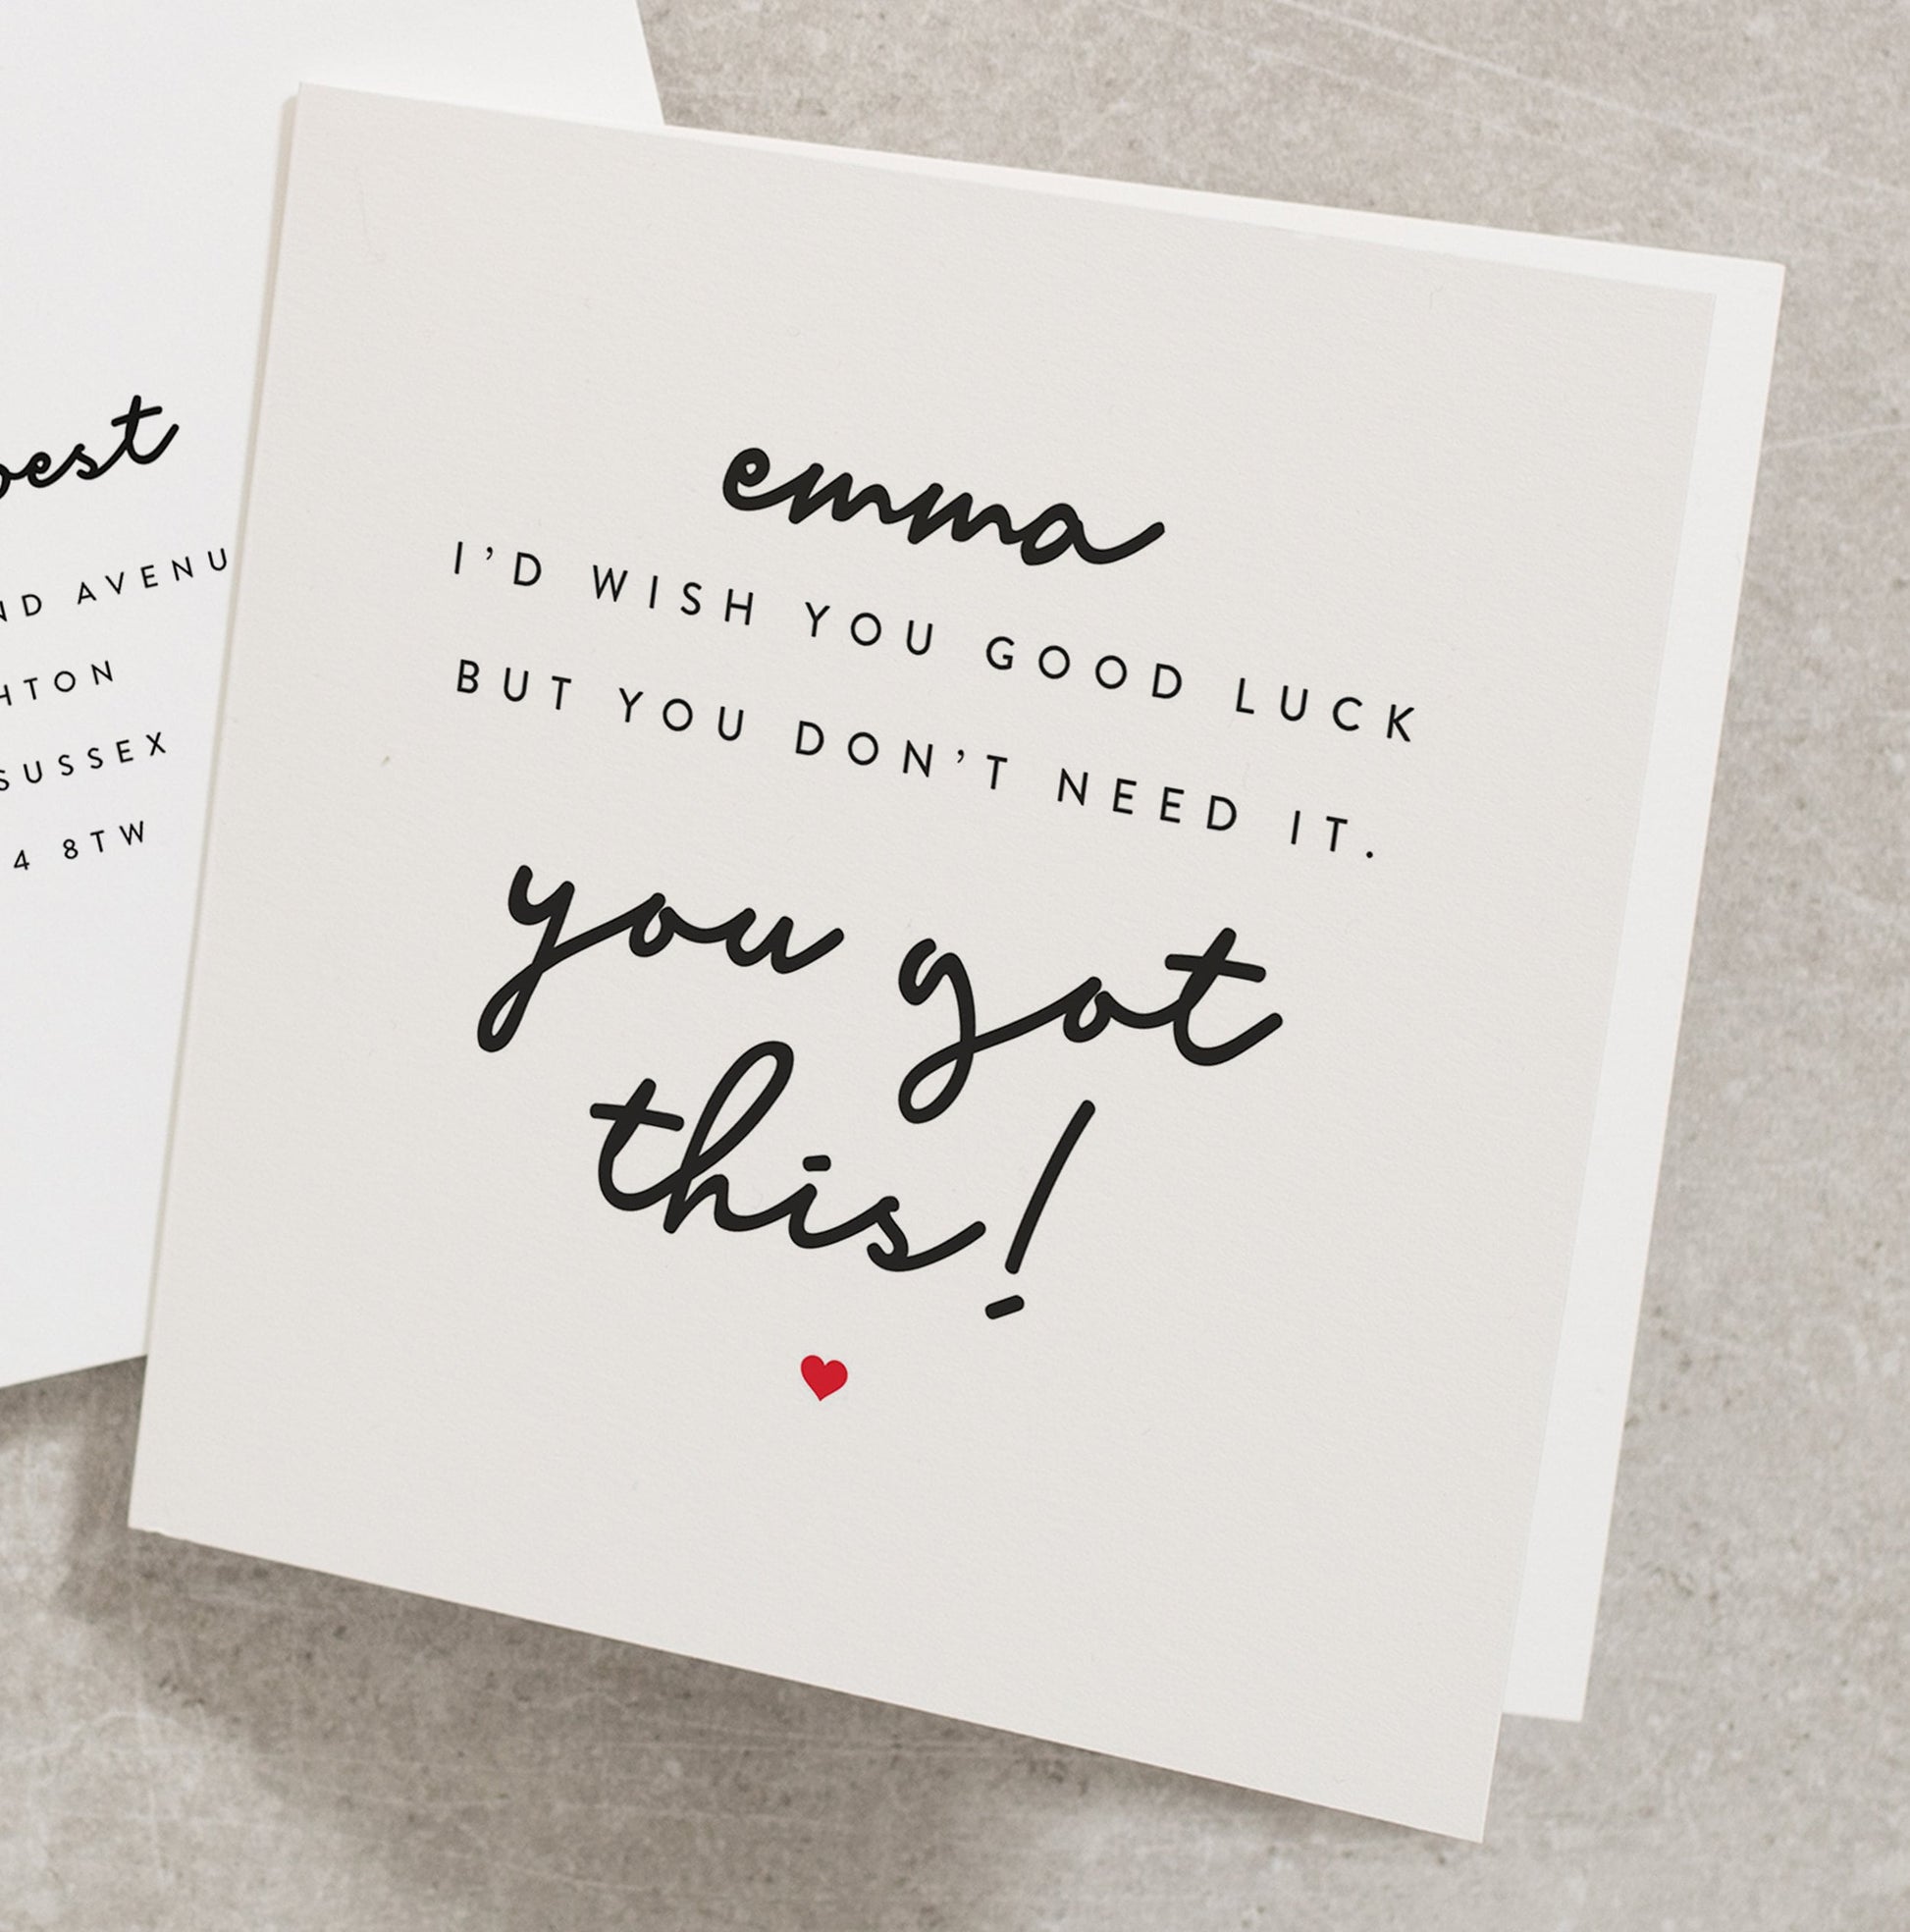 best
ND AVENU
HTON
SUSSEX
4 8TW
emma
I'D WISH YOU GOOD LUCK
BUT YOU DON'T NEED IT.
you got
this!